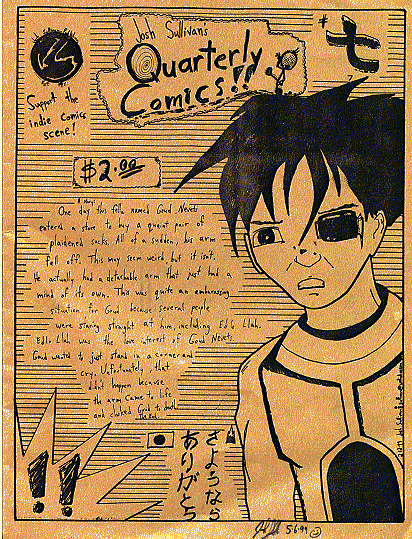 Josh Sullivan's
Quarterly
Comics!!
#七
7
Support the
indie comics
scene!
$2.00
One day this fella named Goud Nevets
entered a store to buy a quaint pair of
plaidened socks. All of a sudden, his arm
fell off. This may seem weird, but it isn't.
He actually had a detachable arm that just had a
mind of its own. This was quite an embarassing
situation for Goud because several people
were staring straight at him, including Ed G Llah.
Llah was the love interest of Goud Nevets.
Goud wanted to just stand in a corner and
cry. Unfortunately, that
didn't happen because
the arm came to life
and choked Goud to death.
!!
さよなら
ありがとう
5·6·99